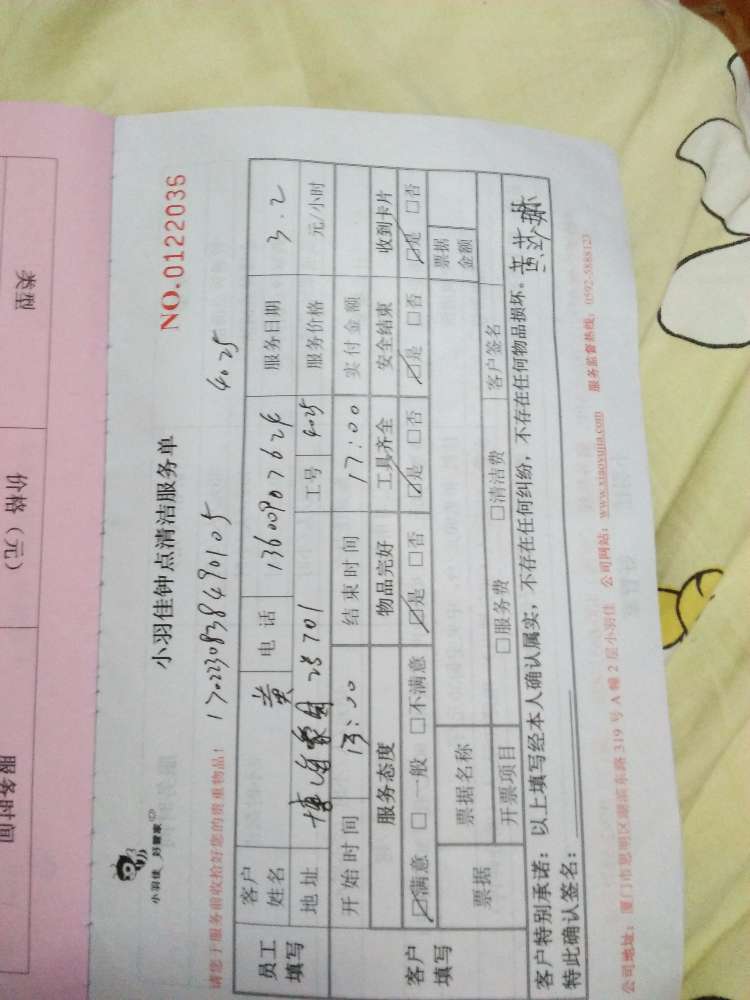 小羽佳 好管家
小羽佳钟点清洁服务单
NO.0122036
请您于服务前收拾好您的贵重物品! 1702230838490105 4025
员工填写 客户姓名 黄 电话 13600907624 服务日期 3.2
地址 28701 工号 4025 服务价格 元/小时
开始时间 13:00 结束时间 17:00 实付金额
客户填写 服务态度 物品完好 工具齐全 安全结束 收到卡片
☑满意 □一般 □不满意 ☑是 □否 ☑是 □否 ☑是 □否 ☑是 □否
票据 票据名称 票据金额
开票项目 □服务费 □清洁费 客户签名
客户特别承诺:以上填写经本人确认属实,不存在任何纠纷,不存在任何物品损坏。
特此确认签名:
公司地址:厦门市思明区湖滨东路319号A幢2层小羽佳 公司网站:www.xiaoyujia.com 服务监督热线:0592-5888123
类型
价格(元)
服务时间